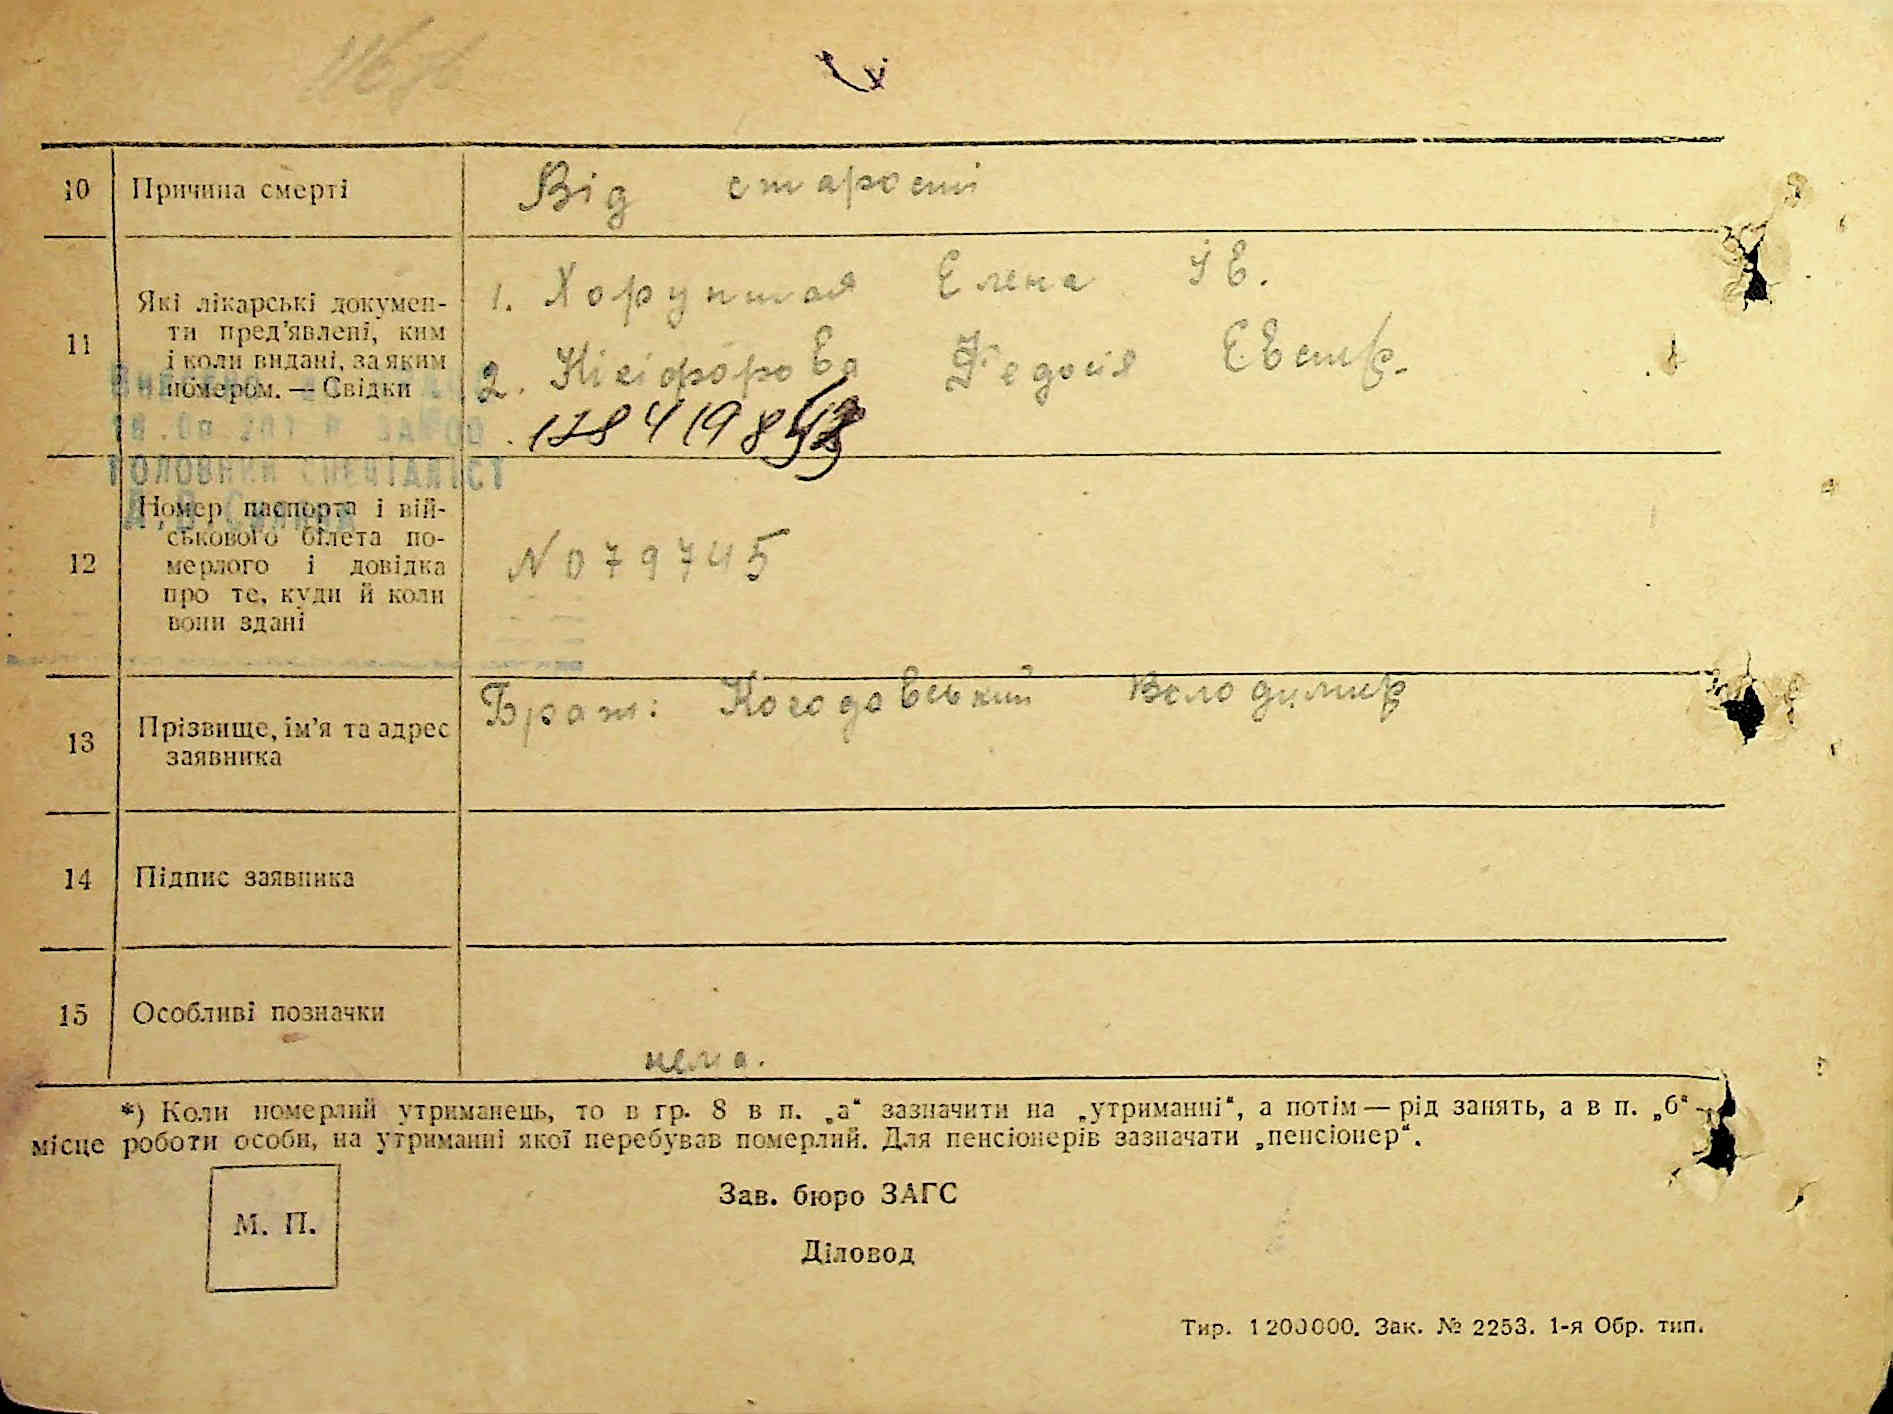 10 Причина смерті Від старості
11 Які лікарські докумен-
ти пред'явлені, ким
і коли видані, за яким
номером. — Свідки
1. Хорунжая Елена
2. Нісіфорова Федосія
ГОЛОВНИЙ СПЕЦІАЛІСТ
12 Номер паспорта і вій-
ськового білета по-
мерлого і довідка
про те, куди й коли
вони здані
N 079745
13 Прізвище, ім'я та адрес
заявника
Брат: Когодовський Володимир
14 Підпис заявника
15 Особливі позначки
нема.
*) Коли померлий утриманець, то в гр. 8 в п. „а“ зазначити на „утриманні“, а потім — рід занять, а в п. „б“ —
місце роботи особи, на утриманні якої перебував померлий. Для пенсіонерів зазначати „пенсіонер“.
М. П.
Зав. бюро ЗАГС
Діловод
Тир. 1 200000. Зак. № 2253. 1-я Обр. тип.